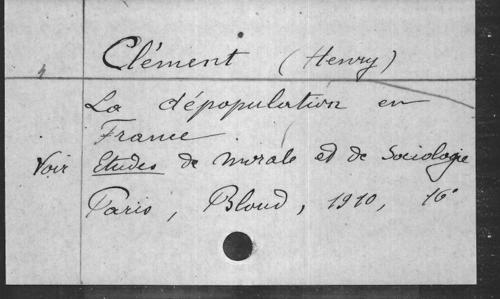 Clément (Henry)
La dépopulation en
France
Voir Etudes de morale et de Sociologie
Paris, Bloud, 1910, 16°